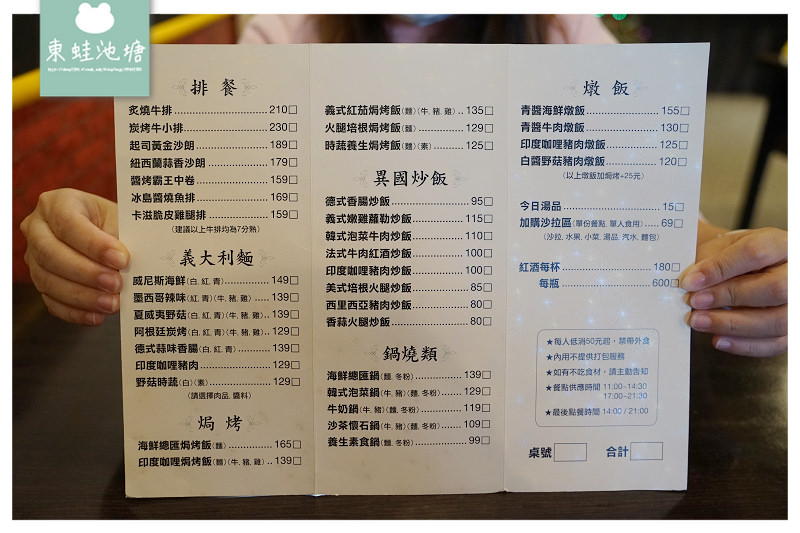 東蛙池塘
排餐
炙燒牛排 210□
炭烤牛小排 230□
起司黃金沙朗 189□
紐西蘭蒜香沙朗 179□
醬烤霸王中卷 159□
冰島醬燒魚排 169□
卡滋脆皮雞腿排 159□
(建議以上牛排均為7分熟)
義大利麵
威尼斯海鮮(白.紅.青) 149□
墨西哥辣味(紅.青)(牛.豬.雞) 139□
夏威夷野菇(白.紅.青)(牛.豬.雞) 139□
阿根廷炭烤(白.紅.青)(牛.豬.雞) 129□
德式蒜味香腸(白.紅.青) 139□
印度咖哩豬肉 129□
野菇時蔬(白)(素) 129□
(請選擇肉品.醬料)
焗烤
海鮮總匯焗烤飯(麵) 165□
印度咖哩焗烤飯(麵)(牛.豬.雞) 139□
義式紅茄焗烤飯(麵)(牛.豬.雞) 135□
火腿培根焗烤飯(麵) 129□
時蔬養生焗烤飯(麵)(素) 125□
異國炒飯
德式香腸炒飯 95□
義式嫩雞蘿勒炒飯 115□
韓式泡菜牛肉炒飯 110□
法式牛肉紅酒炒飯 100□
印度咖哩豬肉炒飯 100□
美式培根火腿炒飯 85□
西里西亞豬肉炒飯 80□
香蒜火腿炒飯 80□
鍋燒類
海鮮總匯鍋(麵.冬粉) 139□
韓式泡菜鍋(牛.豬)(麵.冬粉) 129□
牛奶鍋(牛.豬)(麵.冬粉) 119□
沙茶懷石鍋(牛.豬)(麵.冬粉) 109□
養生素食鍋(麵.冬粉) 99□
燉飯
青醬海鮮燉飯 155□
青醬牛肉燉飯 130□
印度咖哩豬肉燉飯 125□
白醬野菇豬肉燉飯 120□
(以上燉飯加焗烤+25元)
今日湯品 15□
加購沙拉區(單份餐點.單人食用) 69□
(沙拉.水果.小菜.湯品.汽水.麵包)
紅酒每杯 180□
每瓶 600□
★每人低消50元起，禁帶外食
★內用不提供打包服務
★如有不吃食材，請主動告知
★餐點供應時間 11:00~14:30
17:00~21:30
★最後點餐時間 14:00 / 21:00
桌號 合計